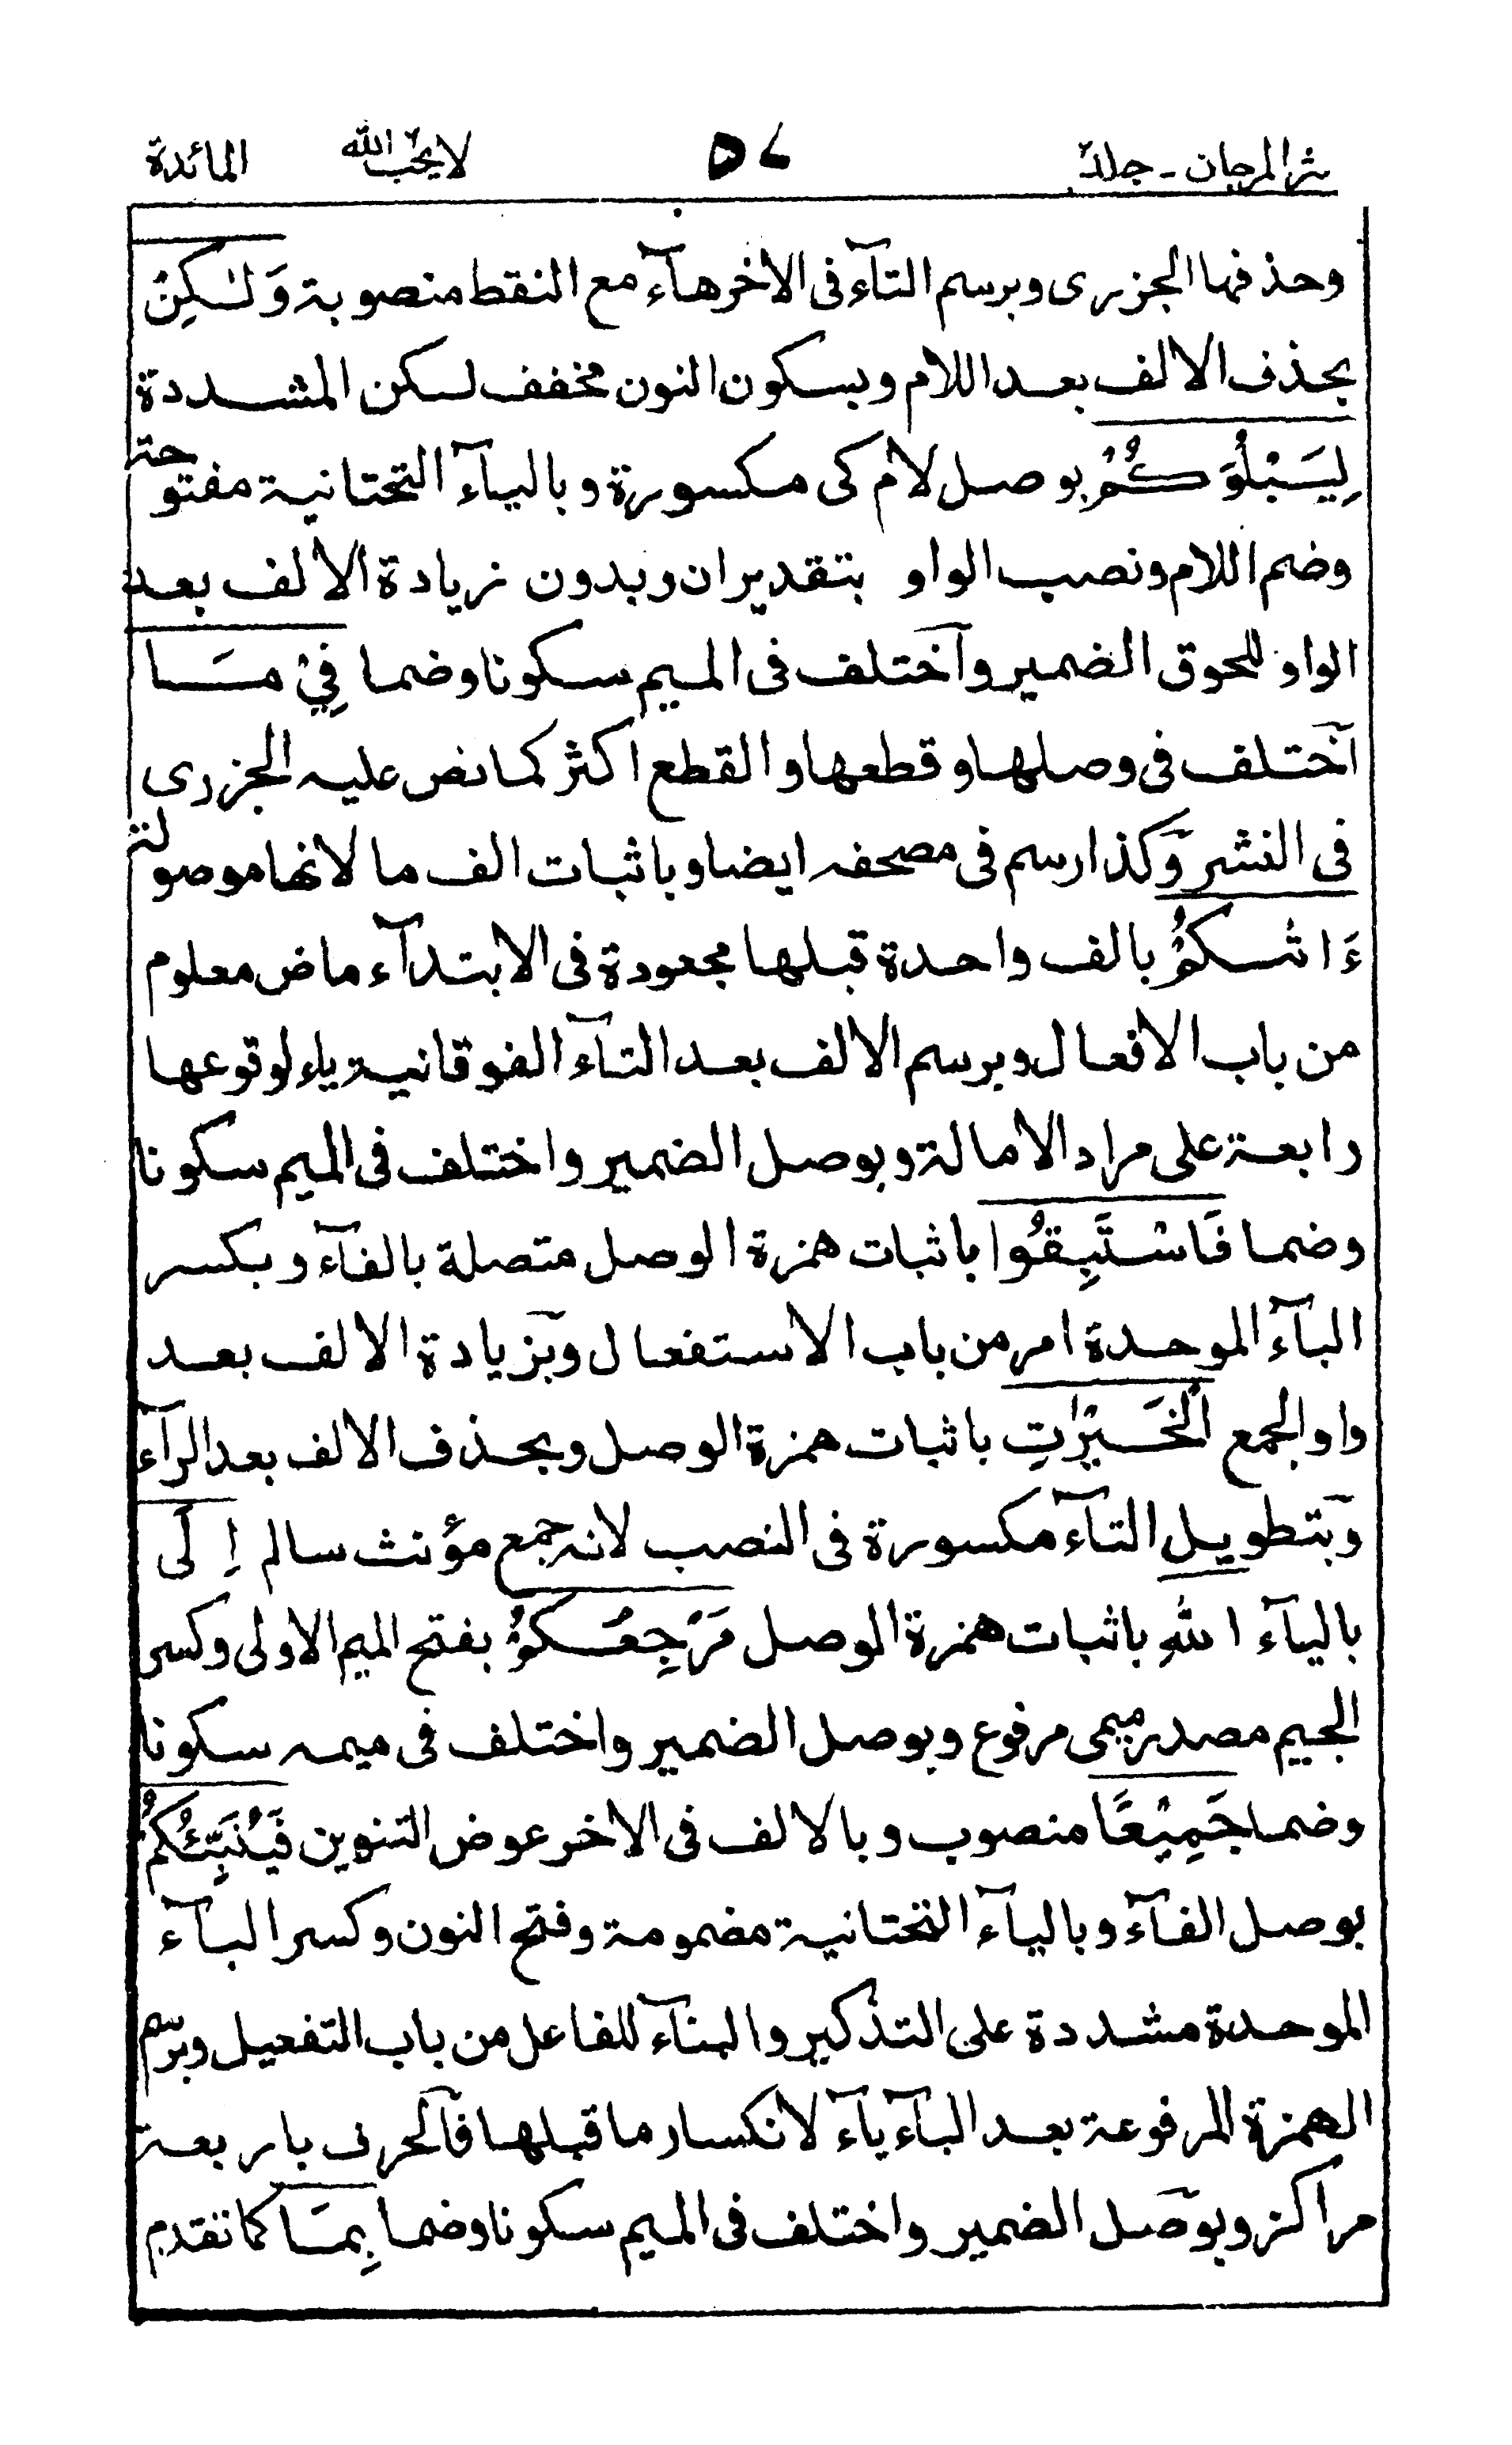 نثر المرجان - جلد٢ ٥٧ لا يحب الله المائدة
وحذفها الجزرى وبرسم التآء فى الاخر هآء مع النقط منصوبة وَلٰكِنْ
بحذف الالف بعد اللام وبسكون النون مخفف لكن المشددة
لِيَبْلُوَكُمْ بوصل لام كى مكسورة وباليآء التحتانية مفتوحة
وضم اللام ونصب الواو بتقدير ان وبدون زيادة الالف بعد
الواو للحوق الضمير وآختلف فى الميم سكونا وضما فِيْ مَا
آختلف فى وصلها وقطعها والقطع اكثر كما نص عليه الجزرى
فى النشر وكذا رسم فى مصحفه ايضا وباثبات الف ما لانها موصولة
ءَاتٰىكُمْ بالف واحدة قبلها مجعودة فى الابتدآء ماض معلوم
من باب الافعال وبرسم الالف بعد التآء الفوقانية ياء لوقوعها
رابعة على مراد الامالة وبوصل الضمير واختلف فى الميم سكونا
وضما فَاسْتَبِقُوا باثبات همزة الوصل متصلة بالفآء وبكسر
البآء الموحدة امر من باب الاستفعال وبزيادة الالف بعد
واو الجمع الْخَيْرٰتِ باثبات همزة الوصل وبحذف الالف بعد الرآء
وبتطويل التآء مكسورة فى النصب لانه جمع مؤنث سالم اِلَى
باليآء اللهِ باثبات همزة الوصل مَرْجِعُكُمْ بفتح الميم الاولى وكسر
الجيم مصدر ميمى مرفوع وبوصل الضمير واختلف فى ميمه سكونا
وضما جَمِيْعًا منصوب وبالالف فى الاخر عوض التنوين فَيُنَبِّئُكُمْ
بوصل الفآء وباليآء التحتانية مضمومة وفتح النون وكسر البآء
الموحدة مشددة على التذكير والبنآء للفاعل من باب التفعيل وبرسم
الهمزة المرفوعة بعد البآء يآء لانكسار ما قبلها فآلحرف باربعة
مراكز وبوصل الضمير واختلف فى الميم سكونا وضما بِمَا كما تقدم